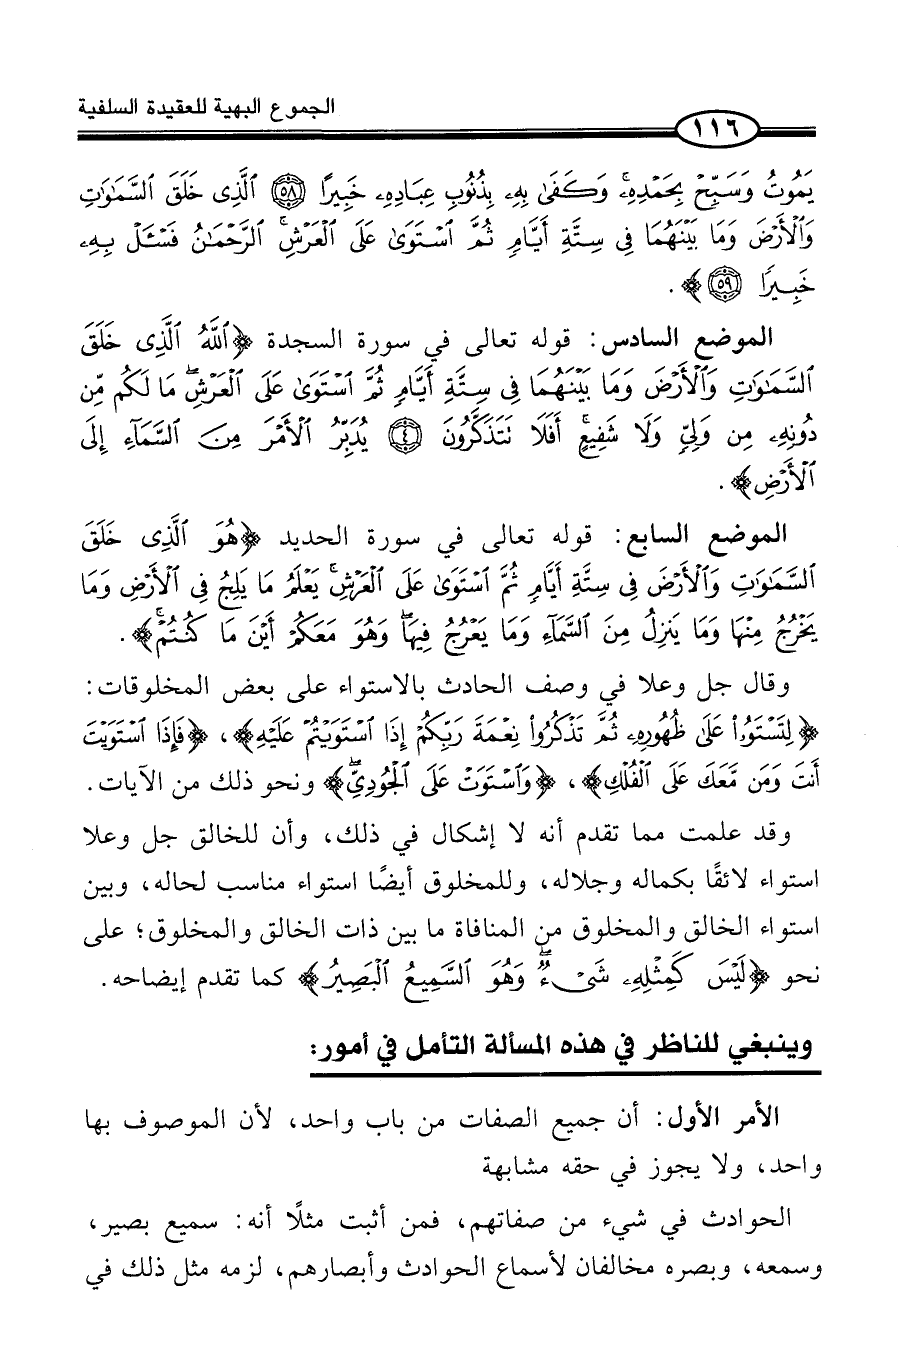 الجموع البهية للعقيدة السلفية
١١٦
يَمُوتُ وَسَبِّحْ بِحَمْدِهِۦۚ وَكَفَىٰ بِهِۦ بِذُنُوبِ عِبَادِهِۦ خَبِيرًا ﴿٥٨﴾ ٱلَّذِى خَلَقَ ٱلسَّمَٰوَٰتِ
وَٱلْأَرْضَ وَمَا بَيْنَهُمَا فِى سِتَّةِ أَيَّامٍ ثُمَّ ٱسْتَوَىٰ عَلَى ٱلْعَرْشِۚ ٱلرَّحْمَٰنُ فَسْـَٔلْ بِهِۦ
خَبِيرًا ﴿٥٩﴾﴾.
الموضع السادس: قوله تعالى في سورة السجدة ﴿ٱللَّهُ ٱلَّذِى خَلَقَ
ٱلسَّمَٰوَٰتِ وَٱلْأَرْضَ وَمَا بَيْنَهُمَا فِى سِتَّةِ أَيَّامٍ ثُمَّ ٱسْتَوَىٰ عَلَى ٱلْعَرْشِۖ مَا لَكُم مِّن
دُونِهِۦ مِن وَلِىٍّ وَلَا شَفِيعٍۚ أَفَلَا تَتَذَكَّرُونَ ﴿٤﴾ يُدَبِّرُ ٱلْأَمْرَ مِنَ ٱلسَّمَآءِ إِلَى
ٱلْأَرْضِ﴾.
الموضع السابع: قوله تعالى في سورة الحديد ﴿هُوَ ٱلَّذِى خَلَقَ
ٱلسَّمَٰوَٰتِ وَٱلْأَرْضَ فِى سِتَّةِ أَيَّامٍ ثُمَّ ٱسْتَوَىٰ عَلَى ٱلْعَرْشِۚ يَعْلَمُ مَا يَلِجُ فِى ٱلْأَرْضِ وَمَا
يَخْرُجُ مِنْهَا وَمَا يَنزِلُ مِنَ ٱلسَّمَآءِ وَمَا يَعْرُجُ فِيهَاۖ وَهُوَ مَعَكُمْ أَيْنَ مَا كُنتُمْۚ﴾.
وقال جل وعلا في وصف الحادث بالاستواء على بعض المخلوقات:
﴿لِتَسْتَوُۥا۟ عَلَىٰ ظُهُورِهِۦ ثُمَّ تَذْكُرُوا۟ نِعْمَةَ رَبِّكُمْ إِذَا ٱسْتَوَيْتُمْ عَلَيْهِ﴾، ﴿فَإِذَا ٱسْتَوَيْتَ
أَنتَ وَمَن مَّعَكَ عَلَى ٱلْفُلْكِ﴾، ﴿وَٱسْتَوَتْ عَلَى ٱلْجُودِىِّۖ﴾ ونحو ذلك من الآيات.
وقد علمت مما تقدم أنه لا إشكال في ذلك، وأن للخالق جل وعلا
استواء لائقًا بكماله وجلاله، وللمخلوق أيضًا استواء مناسب لحاله، وبين
استواء الخالق والمخلوق من المنافاة ما بين ذات الخالق والمخلوق؛ على
نحو ﴿لَيْسَ كَمِثْلِهِۦ شَىْءٌۖ وَهُوَ ٱلسَّمِيعُ ٱلْبَصِيرُ﴾ كما تقدم إيضاحه.
وينبغي للناظر في هذه المسألة التأمل في أمور:
الأمر الأول: أن جميع الصفات من باب واحد، لأن الموصوف بها
واحد، ولا يجوز في حقه مشابهة
الحوادث في شيء من صفاتهم، فمن أثبت مثلًا أنه: سميع بصير،
وسمعه، وبصره مخالفان لأسماع الحوادث وأبصارهم، لزمه مثل ذلك في